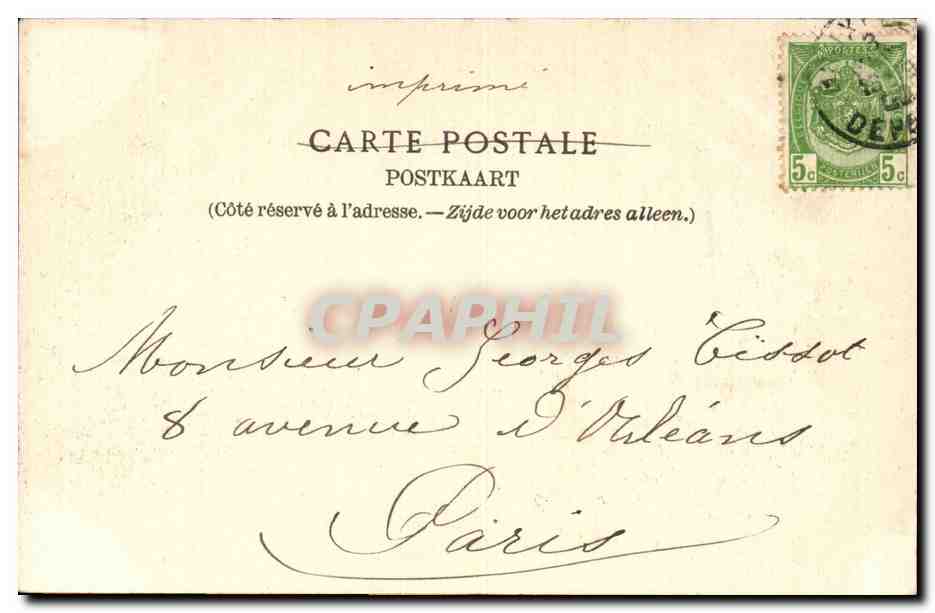 imprimé
CARTE POSTALE
POSTKAART
(Côté réservé à l'adresse. — Zijde voor het adres alleen.)
POSTES
5c
5c
POSTERIJEN
DEPA
CPAPHIL
Monsieur Georges Tissot
8 avenue d'Orléans
Paris